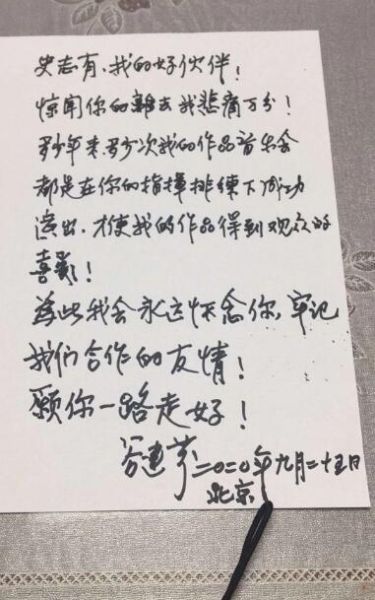 史志有，我的好伙伴！
惊闻你的離去我悲痛万分！
多少年来多少次我的作品音乐会
都是在你的指揮排练下成功
演出，才使我的作品得到观众的
喜歡！
为此我会永远怀念你，牢记
我们合作的友情！
願你一路走好！
谷建芬二〇二〇年九月二十五日
北京